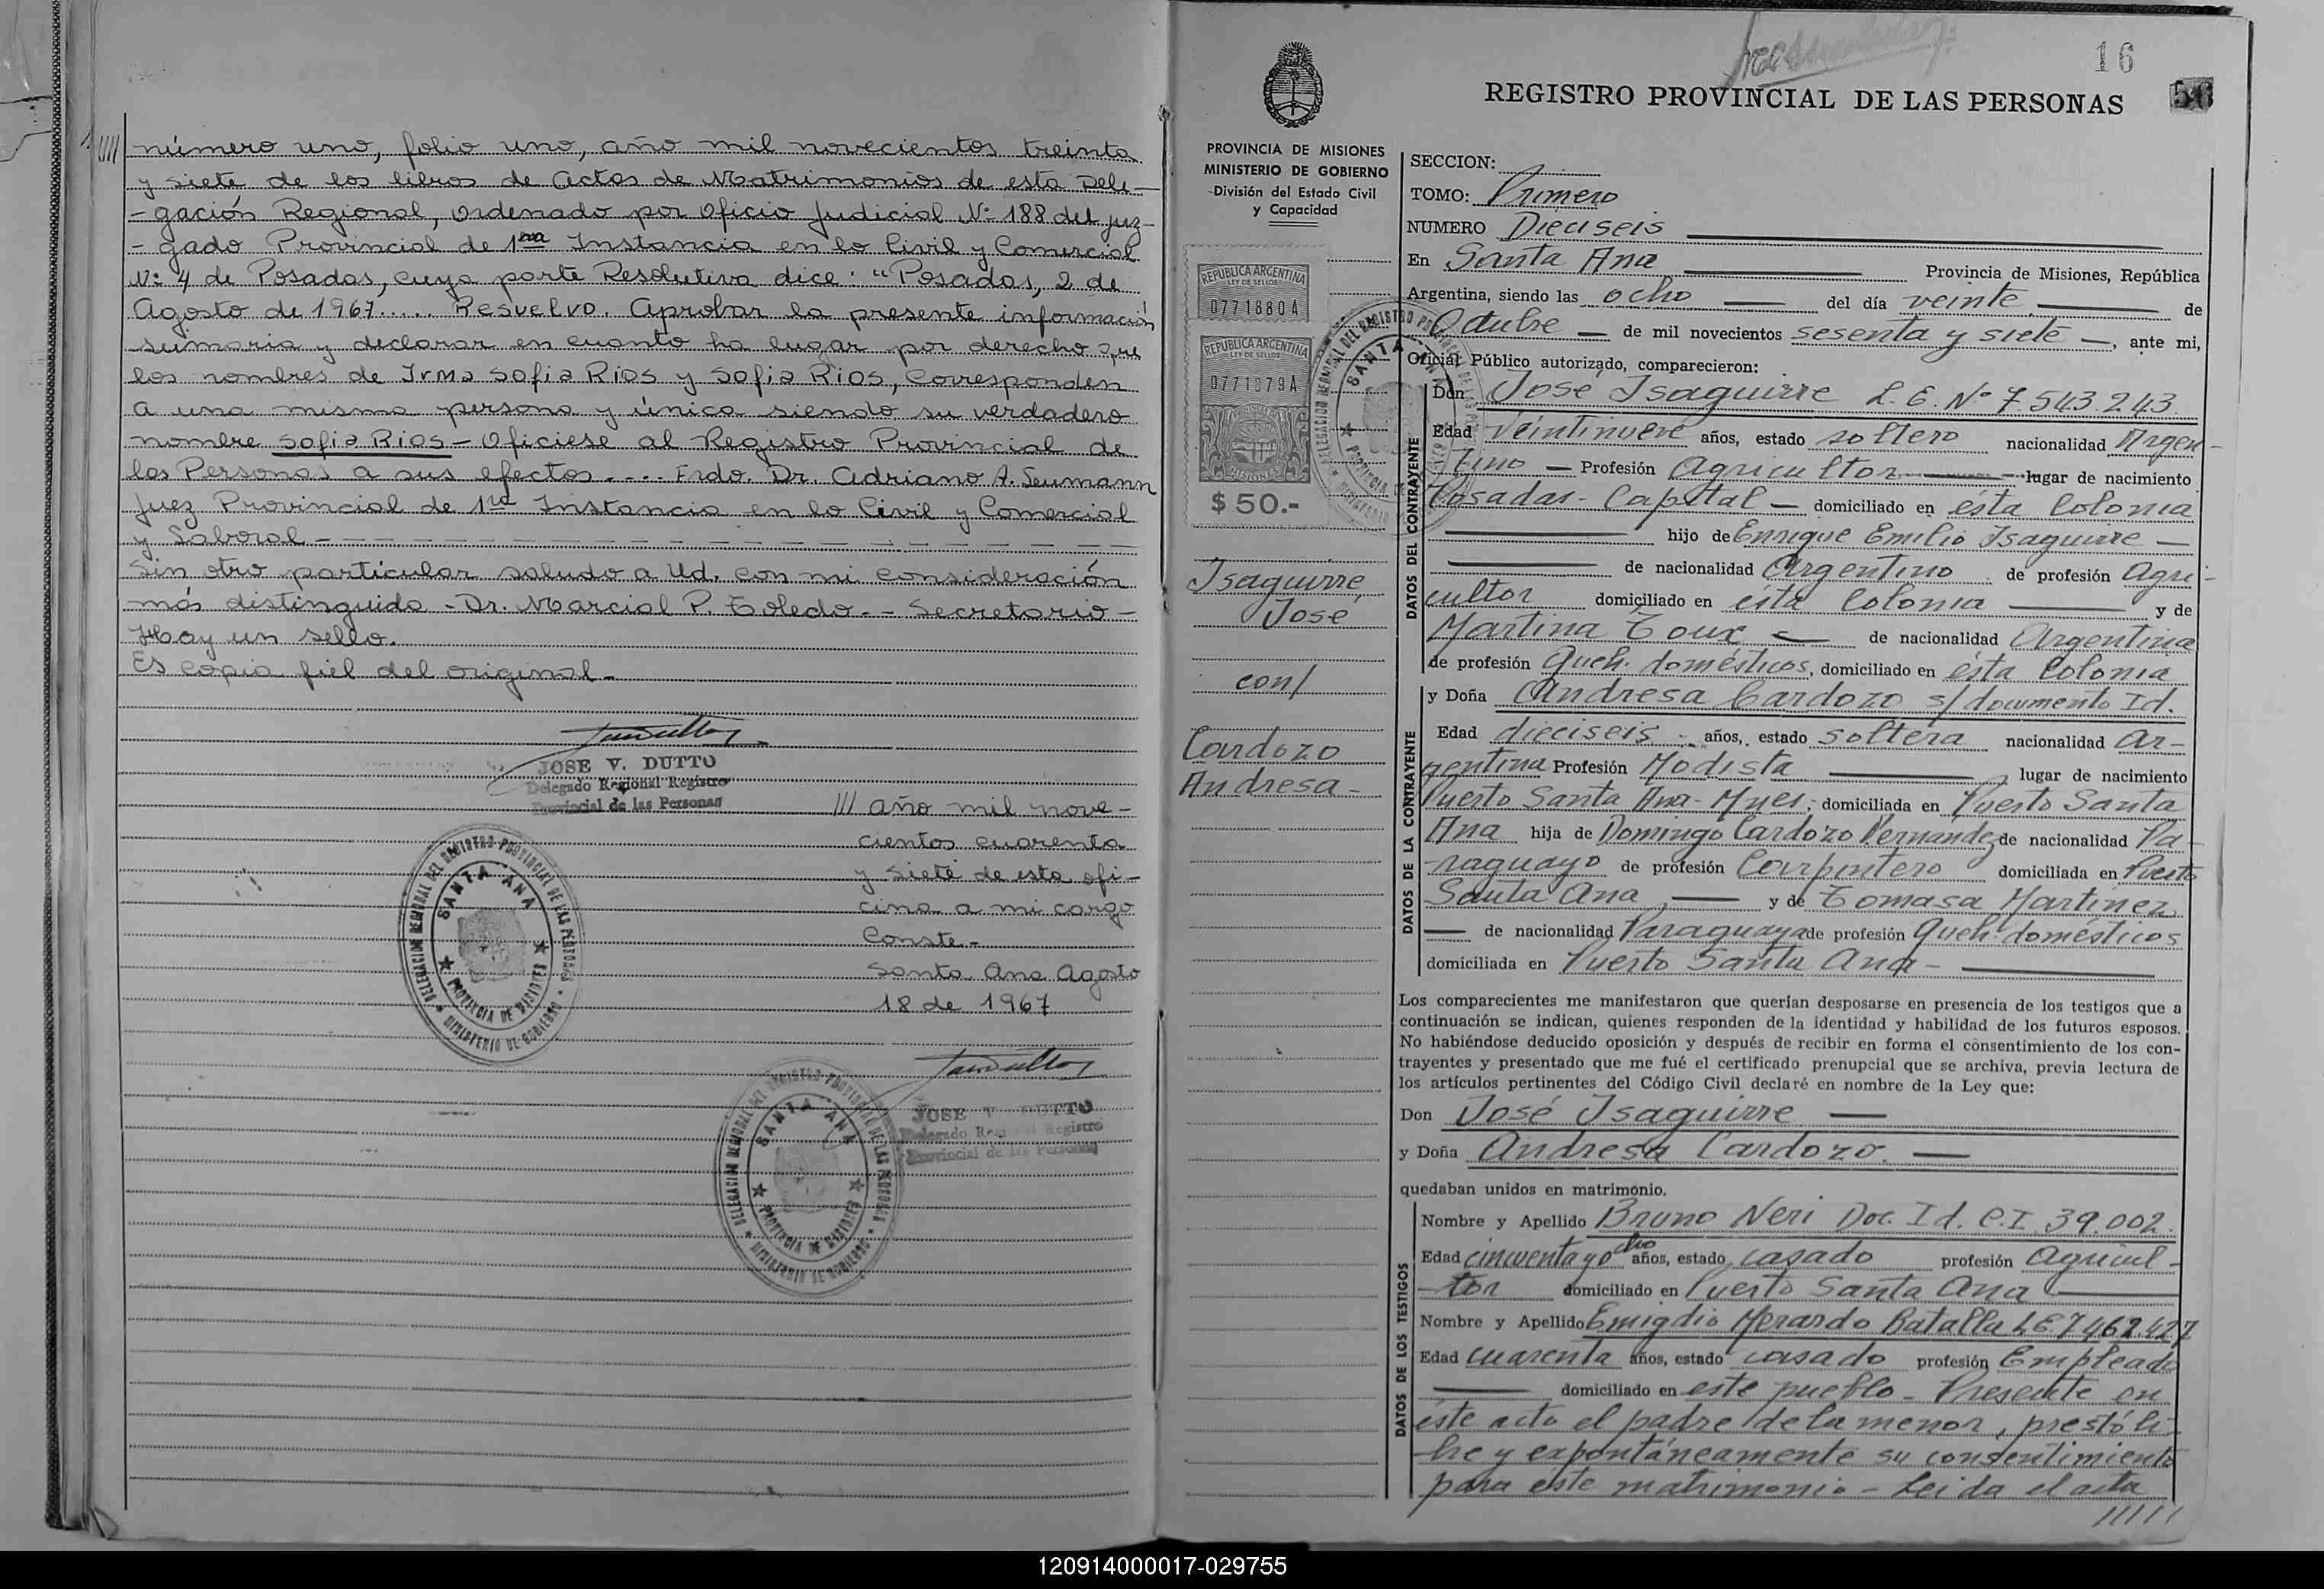 número uno, folio uno, año mil novecientos treinta
y siete de los libros de Actas de Matrimonios de esta Dele-
-gación Regional, ordenado por Oficio Judicial Nº 188 del Juz-
-gado Provincial de 1ra Instancia en lo Civil y Comercial
Nº 4 de Posadas, cuya parte Resolutiva dice: "Posadas, 2 de
Agosto de 1967..... Resuelvo. Aprobar la presente información
sumaria y declarar en cuanto ha lugar por derecho que
los nombres de Irma Sofia Rios y Sofia Rios, corresponden
a una misma persona y única siendo su verdadero
nombre Sofia Rios - Oficiese al Registro Provincial de
las Personas a sus efectos.... Frdo. Dr. Adriano A. Seumann
Juez Provincial de 1ra Instancia en lo Civil y Comercial
y Laboral - - -
Sin otro particular saludo a Ud. con mi consideración
más distinguida - Dr. Marcial P. Toledo. - Secretario -
Hay un sello.
Es copia fiel del original -
JOSE V. DUTTO
Delegado Regional Registro
Provincial de las Personas
/// año mil nove-
cientos cuarenta
y siete de esta ofi-
cina a mi cargo
Conste -
Santa Ana Agosto
18 de 1967
DELEGACION REGIONAL DEL REGISTRO PROVINCIAL DE LAS PERSONAS
SANTA ANA
PROVINCIA DE MISIONES
MINISTERIO DE GOBIERNO
JOSE V. DUTTO
Delegado Regional Registro
Provincial de las Personas
DELEGACION REGIONAL DEL REGISTRO PROVINCIAL DE LAS PERSONAS
SANTA ANA
PROVINCIA DE MISIONES
MINISTERIO DE GOBIERNO
16
REGISTRO PROVINCIAL DE LAS PERSONAS
56
PROVINCIA DE MISIONES
MINISTERIO DE GOBIERNO
División del Estado Civil
y Capacidad
REPUBLICA ARGENTINA
LEY DE SELLOS
0771880A
REPUBLICA ARGENTINA
LEY DE SELLOS
0771879A
MISIONES
$ 50.-
Isaguirre,
José
con/
Cardozo
Andresa -
SECCION:
TOMO: Primero
NUMERO Dieciseis
En Santa Ana Provincia de Misiones, República
Argentina, siendo las ocho del día veinte de
Octubre - de mil novecientos sesenta y siete -, ante mi,
Oficial Público autorizado, comparecieron:
DATOS DEL CONTRAYENTE
Don José Isaguirre L.E. Nº 7.543.243
Edad Veintinueve años, estado soltero nacionalidad Argen-
tino - Profesión Agricultor lugar de nacimiento
Posadas - Capital - domiciliado en ésta Colonia
hijo de Enrique Emilio Isaguirre -
de nacionalidad Argentino de profesión Agri-
cultor domiciliado en ésta Colonia y de
Martina Toux - de nacionalidad Argentina
de profesión Queh. domésticos, domiciliado en ésta Colonia
DATOS DE LA CONTRAYENTE
y Doña Andresa Cardozo s/ documento Id.
Edad dieciseis años, estado soltera nacionalidad Ar-
gentina Profesión Modista lugar de nacimiento
Puerto Santa Ana - Mnes; domiciliada en Puerto Santa
Ana hija de Domingo Cardozo Fernandez de nacionalidad Pa-
raguayo de profesión Carpintero domiciliada en Puerto
Santa Ana, y de Tomasa Martinez
de nacionalidad Paraguaya de profesión Queh. domésticos
domiciliada en Puerto Santa Ana -
Los comparecientes me manifestaron que querían desposarse en presencia de los testigos que a
continuación se indican, quienes responden de la identidad y habilidad de los futuros esposos.
No habiéndose deducido oposición y después de recibir en forma el consentimiento de los con-
trayentes y presentado que me fué el certificado prenupcial que se archiva, previa lectura de
los artículos pertinentes del Código Civil declaré en nombre de la Ley que:
Don José Isaguirre -
y Doña Andresa Cardozo -
quedaban unidos en matrimonio.
DATOS DE LOS TESTIGOS
Nombre y Apellido Bruno Neri Doc. Id. C.I. 39.002.
Edad cincuenta y ocho años, estado casado profesión agricul-
-tor domiciliado en Puerto Santa Ana
Nombre y Apellido Emigdio Merardo Batalla LE 7.462.427
Edad cuarenta años, estado casado profesión Empleado
domiciliado en este pueblo - Presente en
éste acto el padre de la menor, prestó li-
bre y expontáneamente su consentimiento
para este matrimonio - Leida el acta
/////
120914000017-029755